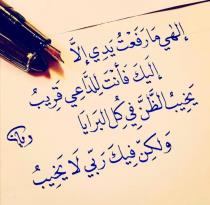 إلهي ما رَفَعْتُ يَدِي إلَّا
إليكَ فأنْتَ لِلدَّاعي قَرِيبُ
يَخِيبُ الظَّنُّ فِي كُلِّ البَرَايَا
وَلكِنْ فِيكَ رَبِّي لَا يَخِيبُ